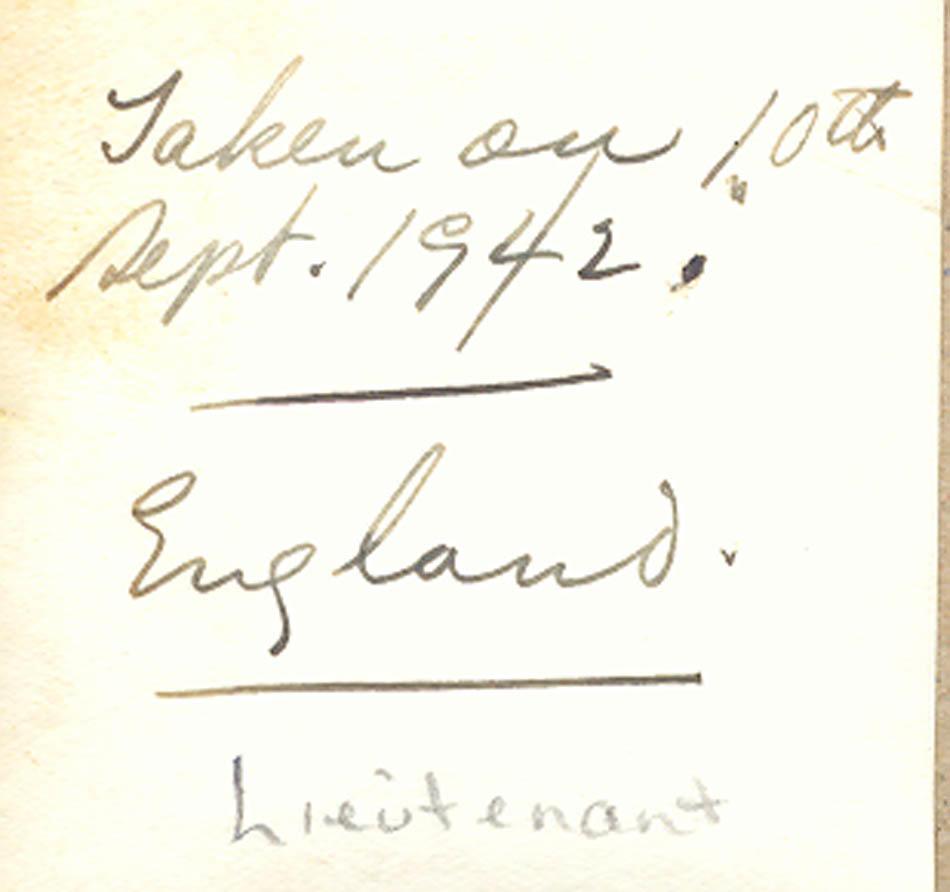 Taken on 10th
Sept. 1942.
England.
Lieutenant